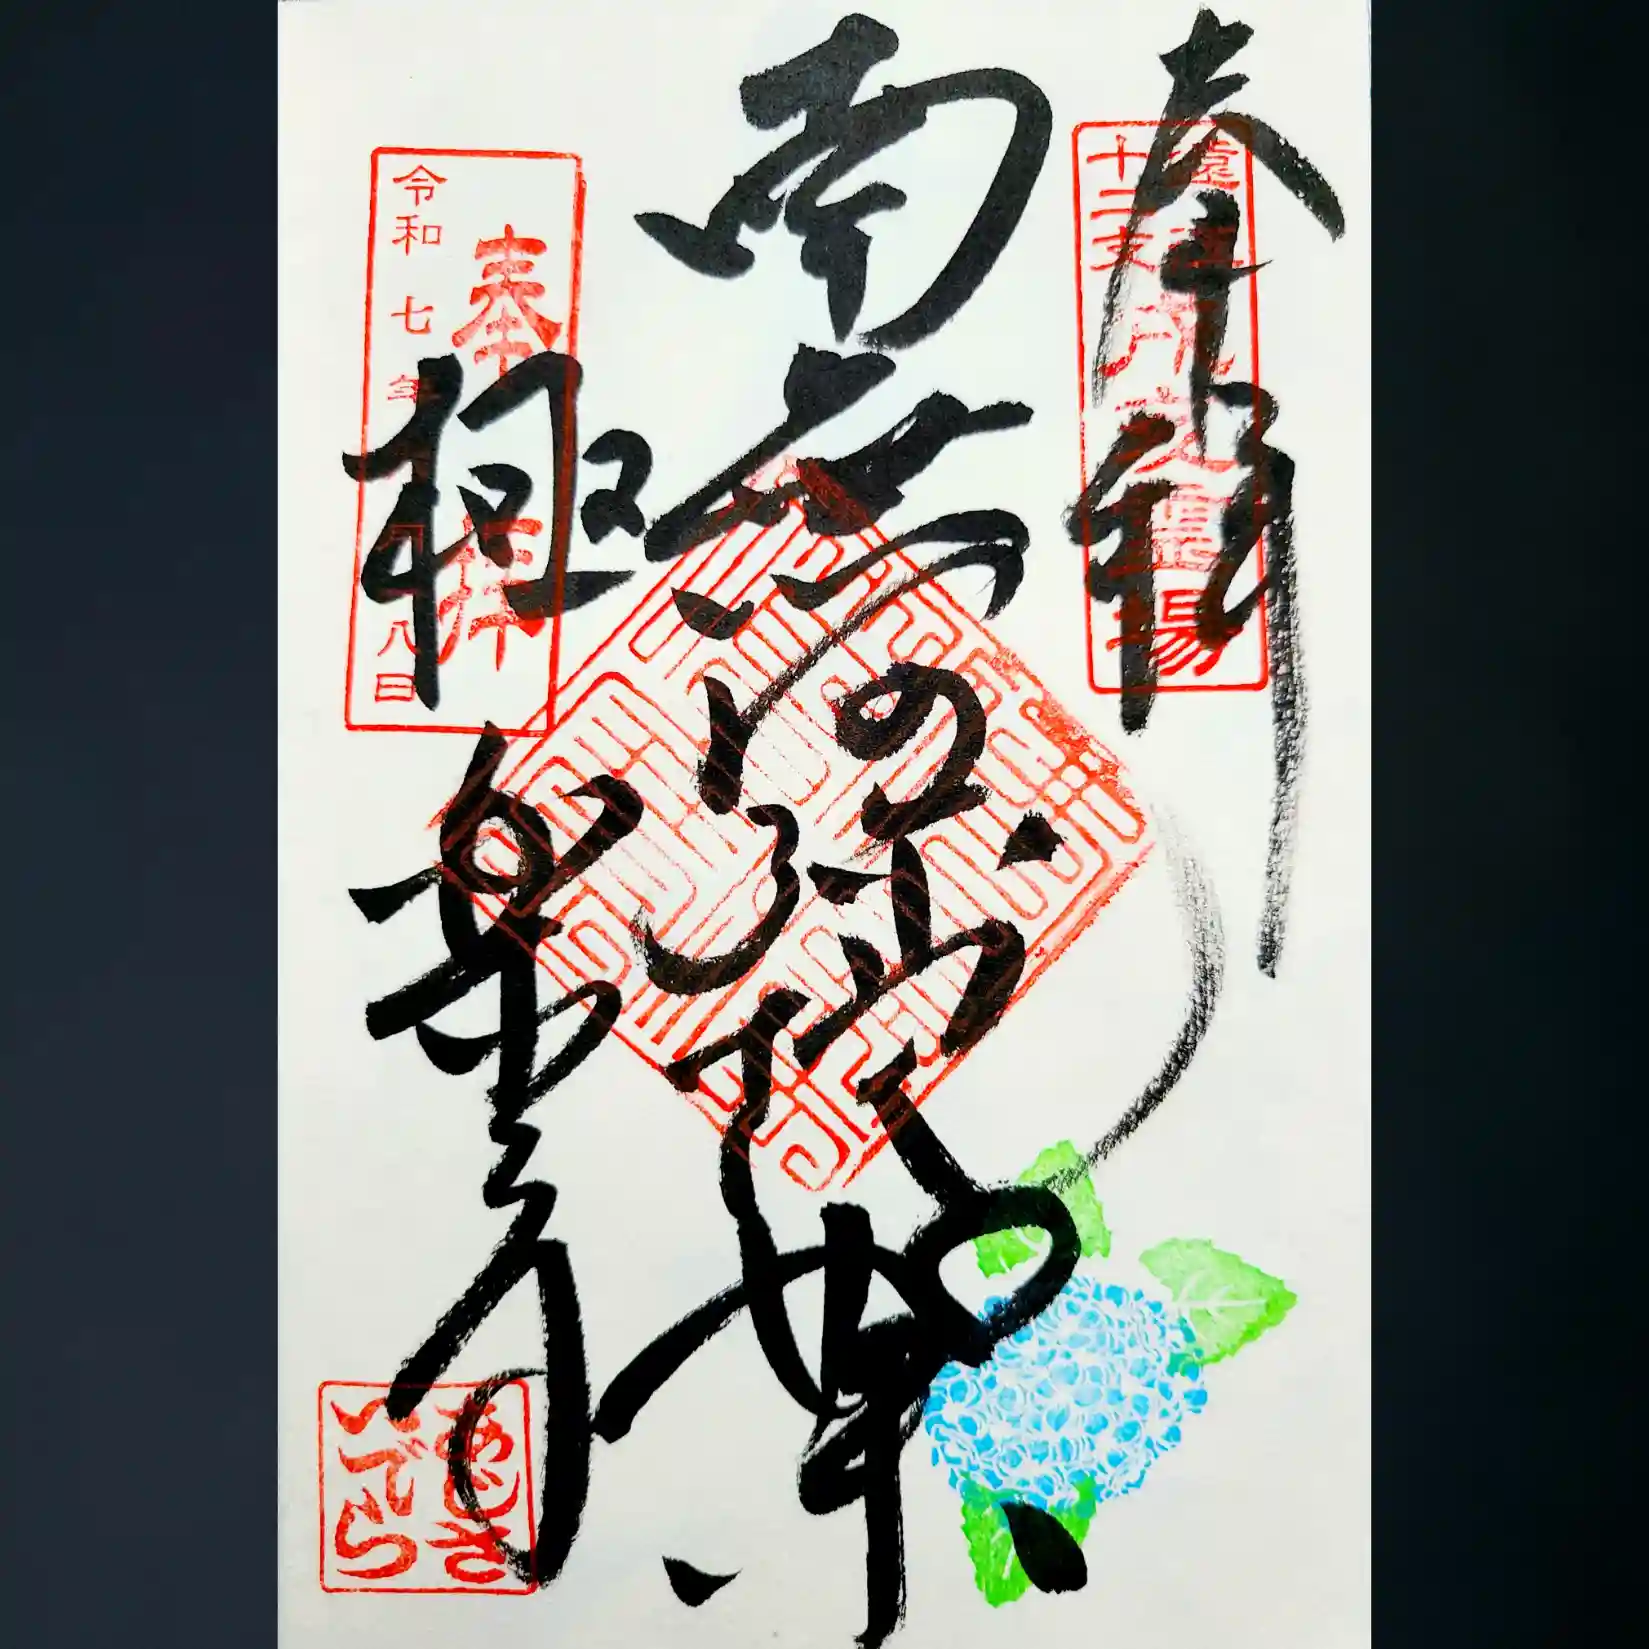 奉拝
遠江
十二支
戌亥霊場
南無阿弥陀佛
奉拝
令和七年
八日
極楽寺
あじさ
いでら